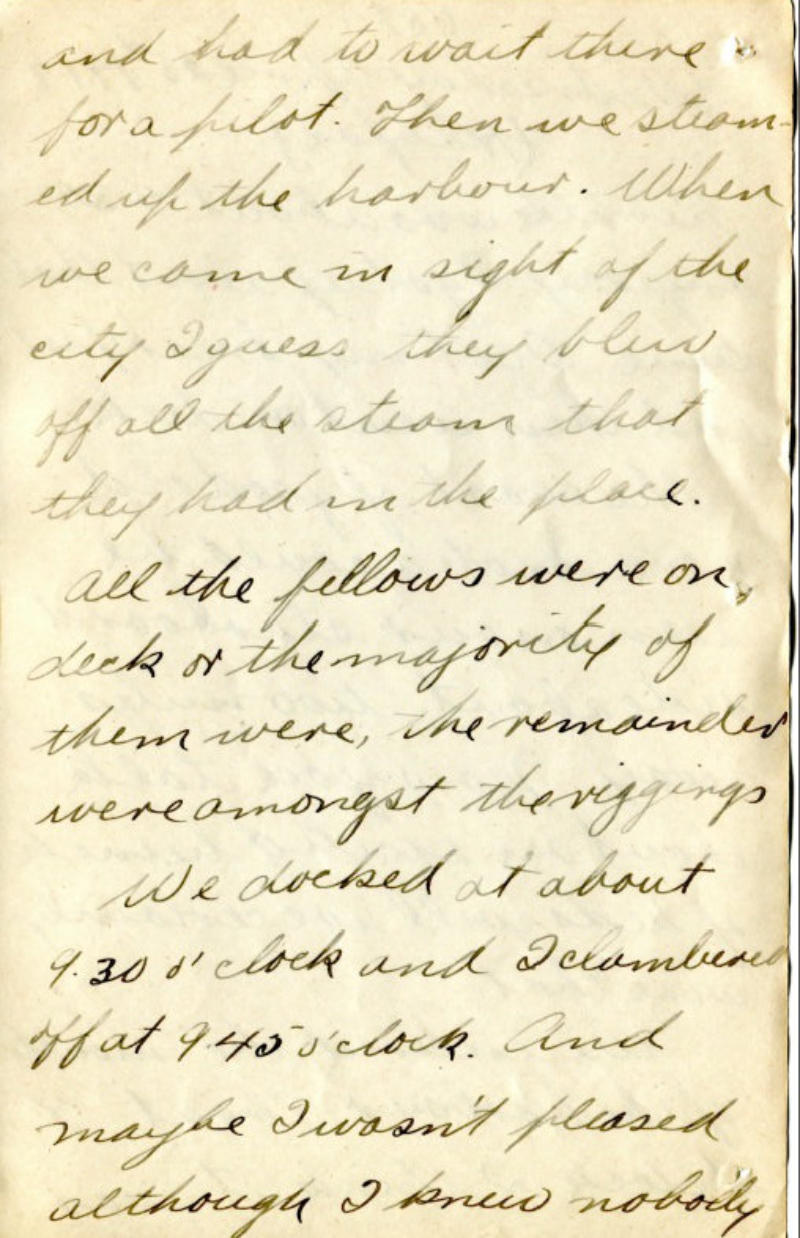 and had to wait there
for a pilot. Then we steam-
ed up the harbour. When
we came in sight of the
city I guess they blew
off all the steam that
they had in the place.
All the fellows were on
deck or the majority of
them were, the remainder
were amongst the riggings
We docked at about
9.30 o'clock and I clambered
off at 9.45 o'clock. And
maybe I wasn't pleased
although I knew nobody